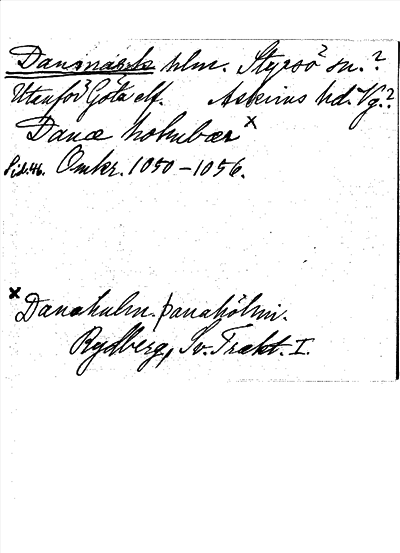 Danmark hlm. Styrsö? sn.?
Utanför Göta elf. Askims hd. Vg.?
Danæ holmbær x
Sid. 46. Omkr. 1050-1056.
x Danaholm. þanahólmi.
Rydberg, Sv. Trakt. I.